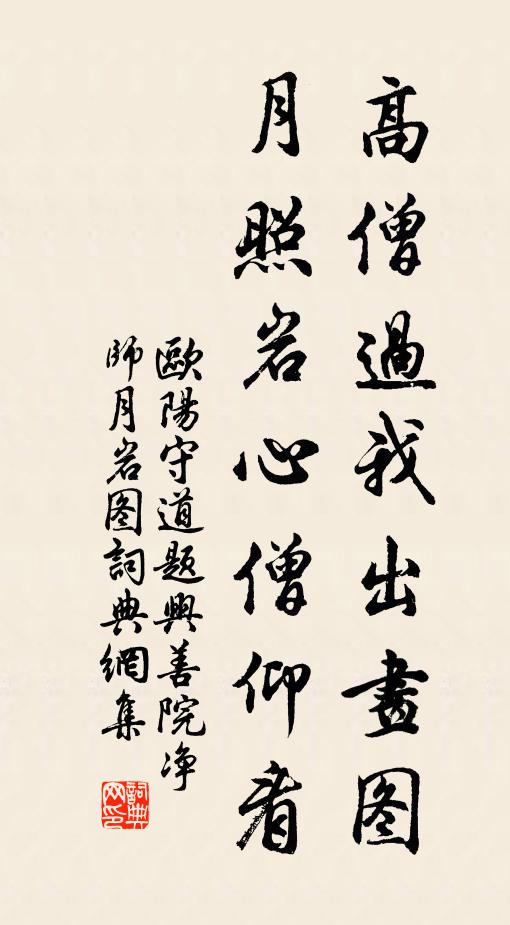 高僧過我出畫图
月照岩心僧仰看
歐陽守道題興善院净
師月岩图詞典網集
詞典
网印